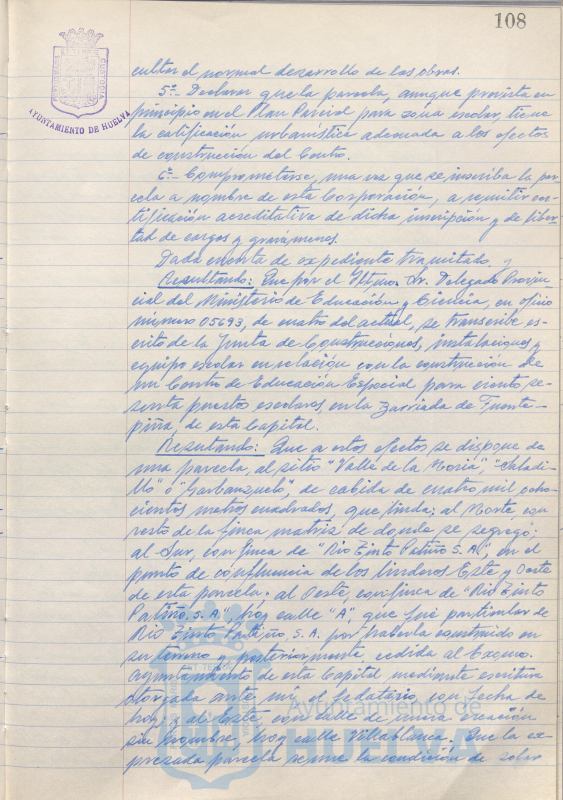 108
AYUNTAMIENTO DE HUELVA
CUSTODIA
cultar el normal desarrollo de las obras.
5º.- Declarar que la parcela, aunque prevista en
principio en el Plan Parcial para zona escolar, tiene
la calificación urbanística adecuada a los efectos
de construcción del Centro.
6º.- Comprometerse, una vez que se inscriba la par-
cela a nombre de esta Corporación, a remitir cer-
tificación acreditativa de dicha inscripción y de liber-
tad de cargos y gravámenes.
Dada cuenta de expediente tramitado, y
Resultando: Que por el Iltmo. Sr. Delegado Provin-
cial del Ministerio de Educación y Ciencia, en oficio
número 05693, de cuatro del actual, se transcribe es-
crito de la Junta de Construcciones, instalaciones y
equipo escolar en relación con la construcción de
un Centro de Educación Especial para ciento se-
senta puestos escolares, en la Barriada de Fuente-
piña, de esta Capital.
Resultando: Que a estos efectos se dispone de
una parcela, al sitio "Valle de la Noria", "Saladi-
llo" o "Garbanzuelo", de cabida de cuatro mil ocho-
cientos metros cuadrados, que linda; al Norte, con
resto de la finca matriz de donde se segregó;
al Sur, con finca de "Rio Tinto Patiño S.A.", en el
punto de confluencia de los linderos Este y Oeste
de esta parcela; al Oeste, con finca de "Rio Tinto
Patiño, S.A.", hoy calle "A", que fué particular de
Rio Tinto Patiño, S.A. por haberla construido en
su terreno y posteriormente cedida al Excmo.
Ayuntamiento de esta Capital mediante escritura
otorgada ante mí, el fedatario, con fecha de
hoy; y al Este, con calle de nueva creación
sin nombre, hoy calle Villablanca. Que la ex-
presada parcela reune la condición de solar
Ayuntamiento de
HUELVA